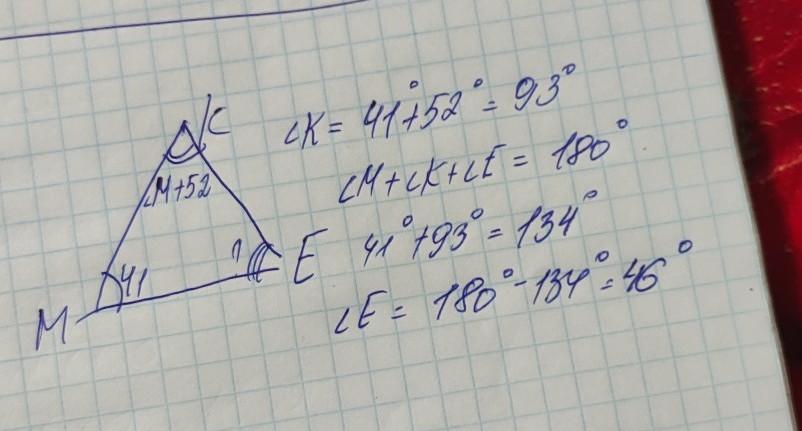 K
∠M+52
41
?
M
E
∠K = 41°+52° = 93°
∠M+∠K+∠E = 180°
41°+93° = 134°
∠E = 180°-134° = 46°